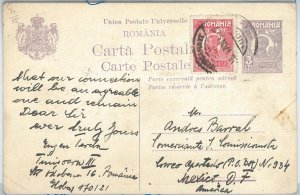 Union Postale Universelle
ROMÂNIA
Carta Poștală
Carte Postale
Parte rezervată pentru adresă
Partie réservée à l'adresse.
ROMANIA
ROMANIA
that our connection
will be an agreable
one and remain
Dear Sir
ever truly yours
Timișoara III
16. Romania
Mr.
Andres Barral
Comerciante y Comisionista
Correo Apartado (P.O. Box) No. 934
Mexico D. F.
America